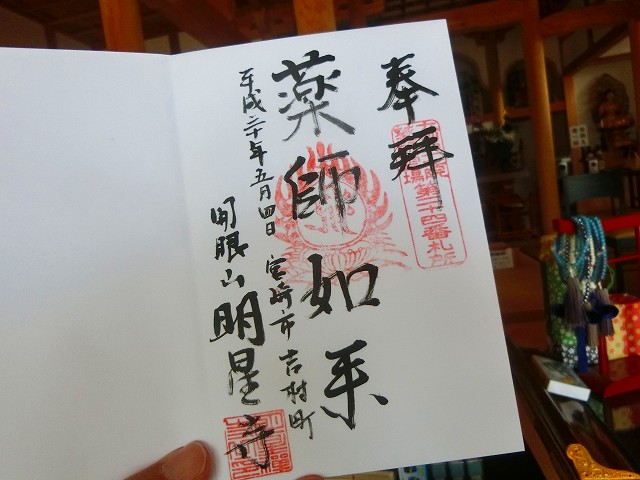 奉拝
薬師如来
宮崎市吉村町
平成三十年五月四日
開眼山 明星寺
第二十四番札所